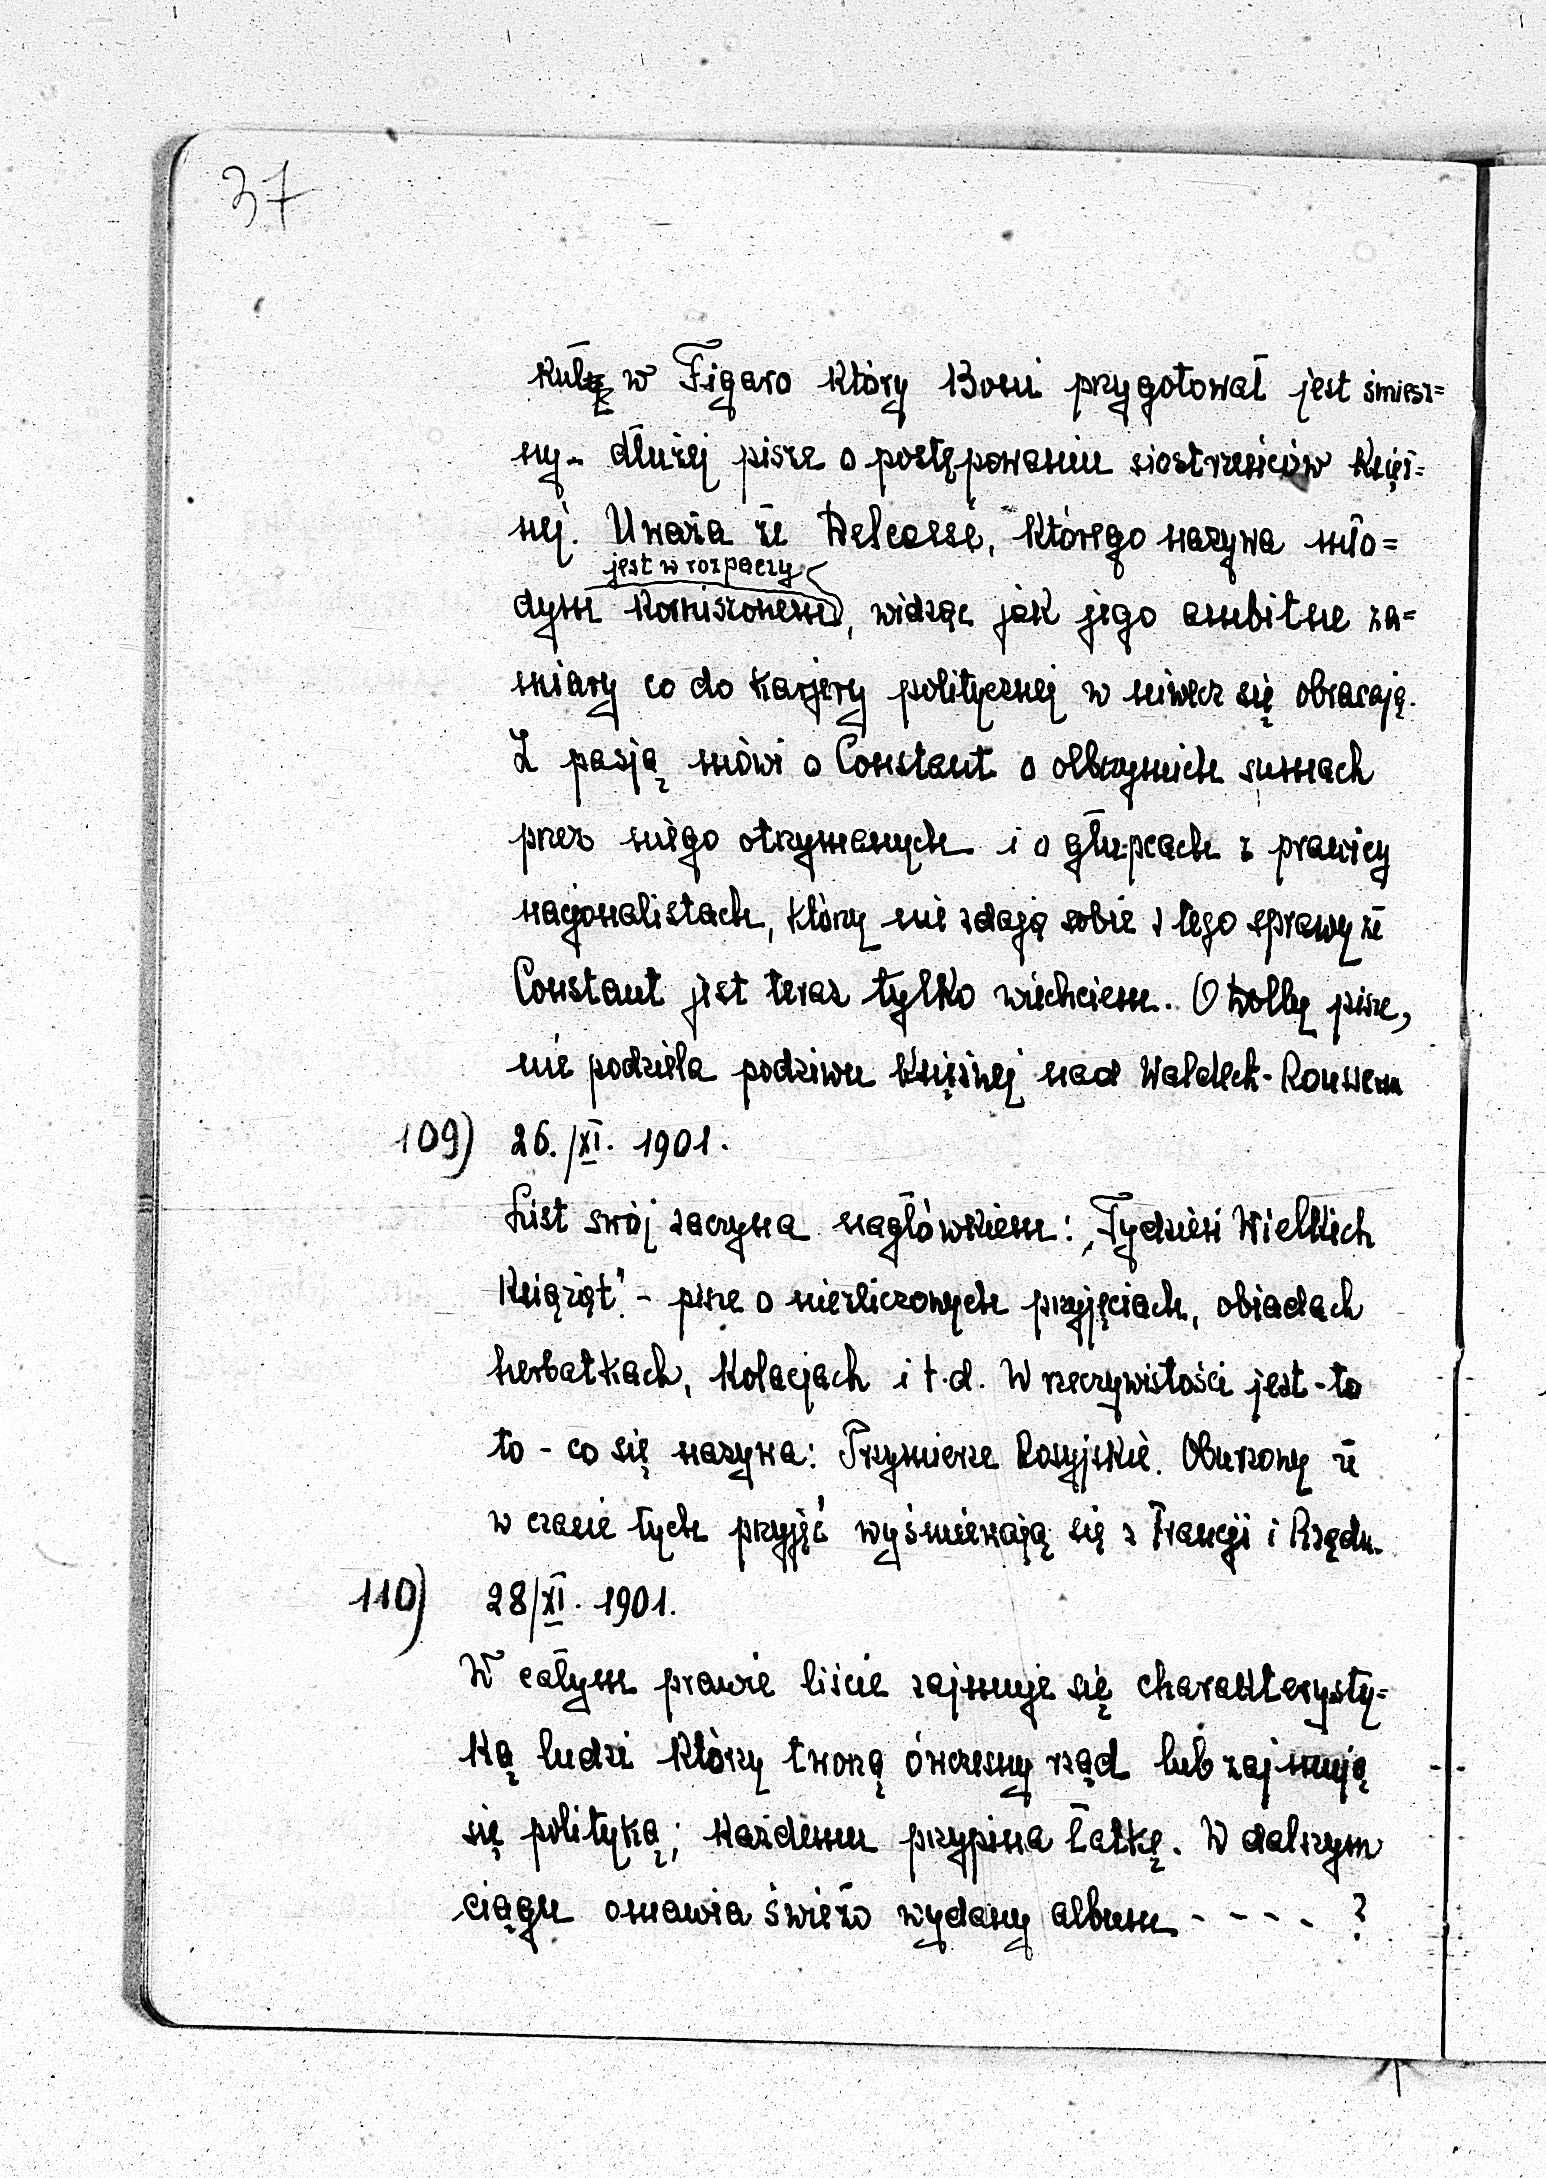 37
kuł w Figaro który Boni przygotował jest śmiesz=
ny - dłużej pisze o postępowaniu siostrzeńców Księż=
nej. Uważa że Delcassé, którego nazywa mło=
jest w rozpaczy
dym Korniszonem, widząc jak jego ambitne za=
miary co do karjery politycznej w niwecz się obracają.
Z pasją mówi o Constant o olbrzymich sumach
przez niego otrzymanych i o głupcach z prawicy
nacjonalistach, którzy nie zdają sobie z tego sprawy że
Constant jest teraz tylko wiechciem. O Dolly pisze,
nie podziela podziwu Księżnej nad Waldeck-Rousseau
109) 26./XI. 1901.
List swój zaczyna nagłówkiem: „Tydzień Wielkich
Książąt" - pisze o niezliczonych przyjęciach, obiadach
herbatkach, kolacjach i t.d. W rzeczywistości jest-to
to - co się nazywa: Przymierze Rosyjskie. Oburzony że
w czasie tych przyjęć wyśmiewają się z Francji i Rządu.
110) 28/XI. 1901.
W całym prawie liście zajmuje się charakterysty=
ką ludzi którzy tworzą ówczesny rząd lub zajmują
się polityką; każdemu przypina łatkę. W dalszym
ciągu omawia świeżo wydany album - - - - ?